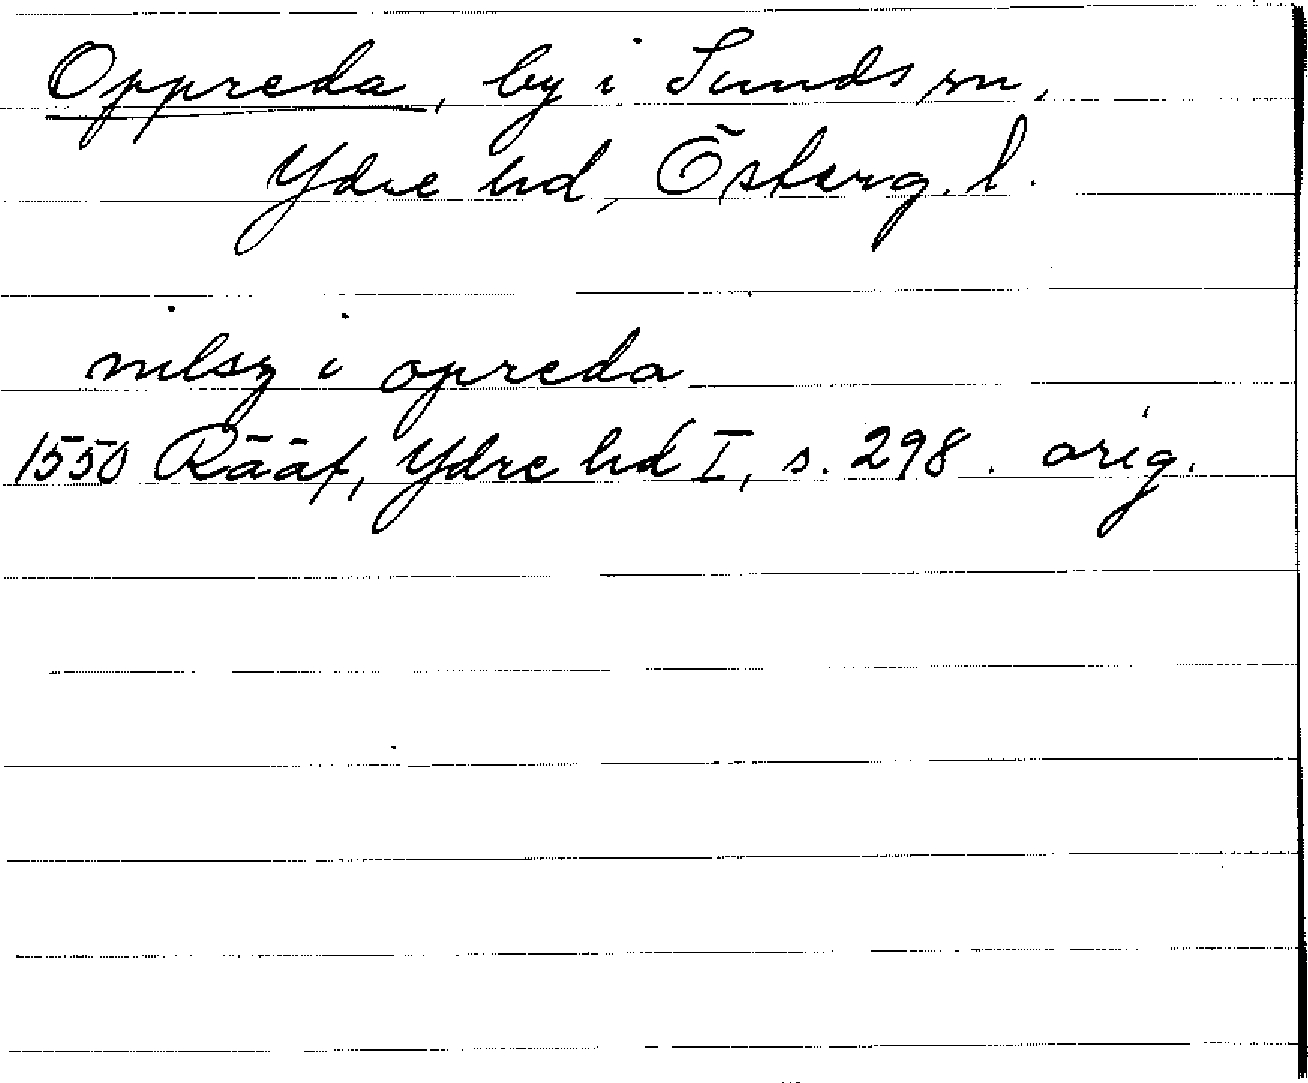 Oppreda, by i Sunds sn,
Ydre hd, Österg. l.
nilsz i opreda
1550 Rääf, Ydre hd I, s. 298. orig.